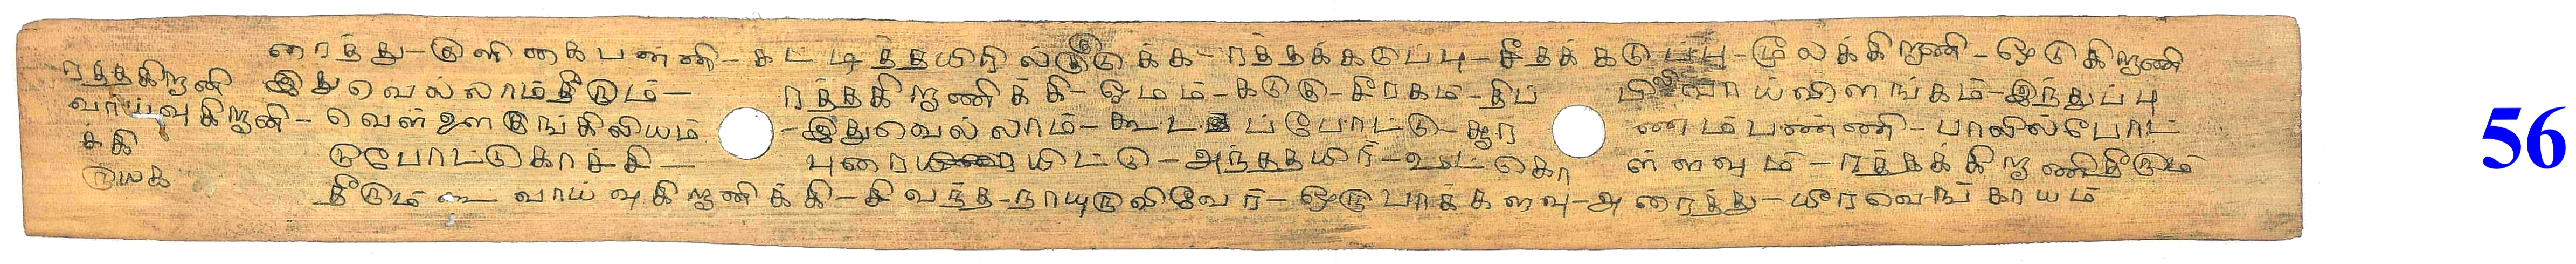 ரைத்து-குளிகைபண்ணி-கட்டித்தயிரில்குடுக்க-ரத்தக்கடுப்பு-சீதக்கடுப்பு-மூலக்கிறாணி-ஓடுகிறாணி
ரத்தகிறாணி இதுவெல்லாம்தீரும்- ரத்தகிறாணிக்கி-ஓமம்-கடுகு-சீரகம்-திப் பிலிவாய்விளங்கம்-இந்துப்பு
வாய்வுகிறாணி- வெள்உளகுங்கிலியம் -இதுவெல்லாம்-கூடப்போட்டு-சூர ணம்பண்ணி-பாலில்போட்
க்கி டுபோட்டுகாச்சி- புரையிட்டு-அந்ததயிர்-உட்கொ ள்ளவும்-ரத்தக்கிறாணிதீரும்
தீரும் வாய்வுகிறாணிக்கி-சிவந்த-நாயுருவிவேர்-ஒருபாக்களவு-அரைத்து-யீரவெங்காயம்